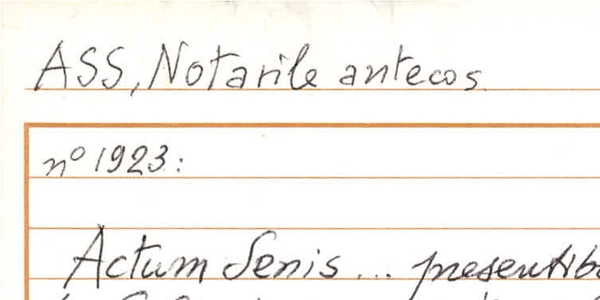 ASS, Notarile antecos.
nº 1923:
Actum Senis... presentib